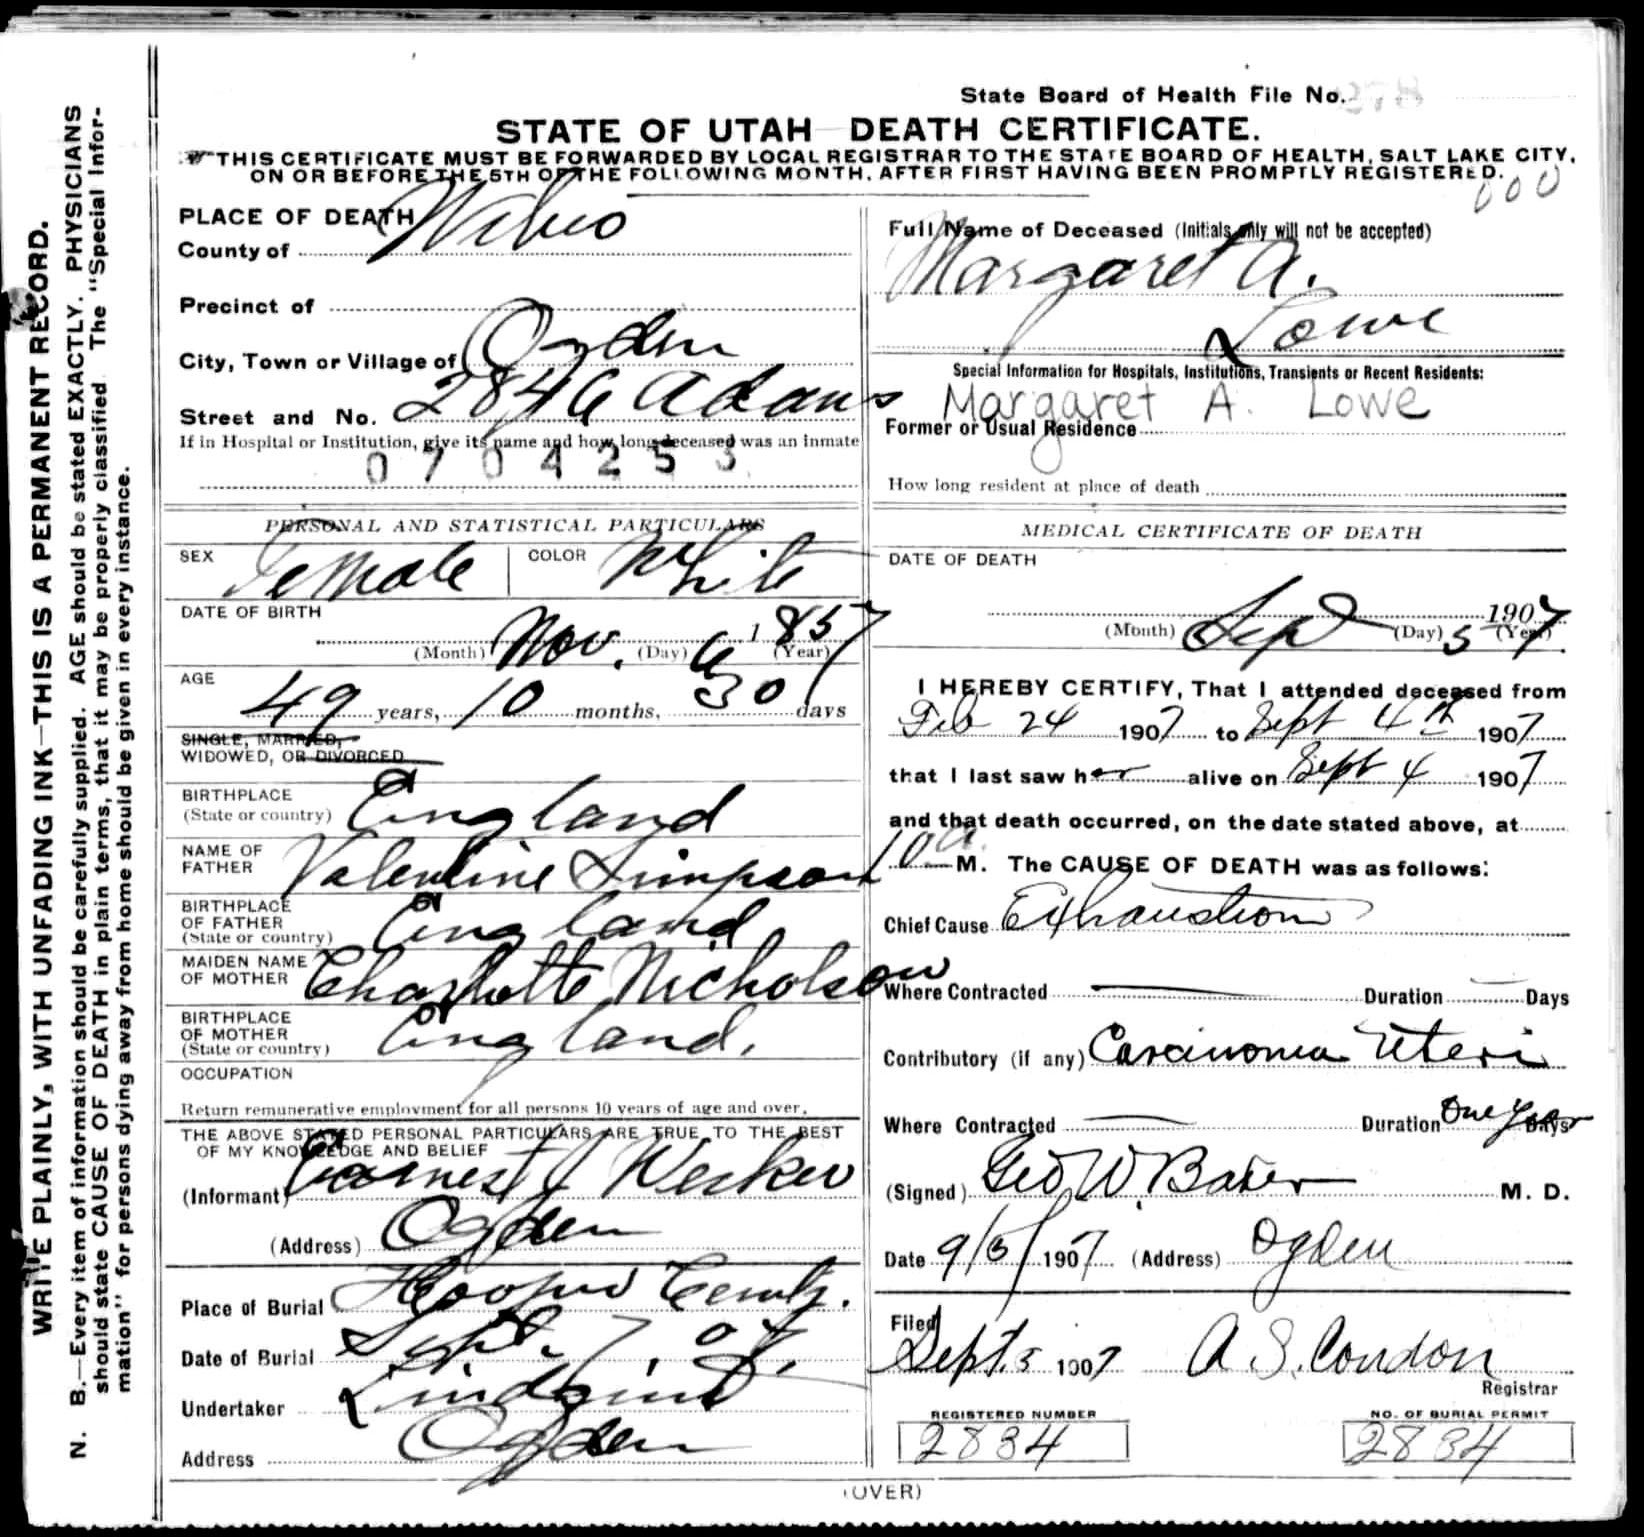 State Board of Health File No. 278
STATE OF UTAH DEATH CERTIFICATE.
THIS CERTIFICATE MUST BE FORWARDED BY LOCAL REGISTRAR TO THE STATE BOARD OF HEALTH, SALT LAKE CITY,
ON OR BEFORE THE 5TH OF THE FOLLOWING MONTH, AFTER FIRST HAVING BEEN PROMPTLY REGISTERED.
000
WRITE PLAINLY, WITH UNFADING INK—THIS IS A PERMANENT RECORD.
N. B.—Every item of information should be carefully supplied. AGE should be stated EXACTLY. PHYSICIANS
should state CAUSE OF DEATH in plain terms, that it may be properly classified. The "Special Infor-
mation" for persons dying away from home should be given in every instance.
PLACE OF DEATH
County of Weber
Precinct of
City, Town or Village of Ogden
Street and No. 2846 Adams
If in Hospital or Institution, give its name and how long deceased was an inmate
0704253
PERSONAL AND STATISTICAL PARTICULARS
SEX Female COLOR White
DATE OF BIRTH
(Month) Nov. (Day) 6 1857 (Year)
AGE
49 years, 10 months, 30 days
SINGLE, MARRIED,
WIDOWED, OR DIVORCED
BIRTHPLACE
(State or country) England
NAME OF
FATHER Valentine Simpson
BIRTHPLACE
OF FATHER
(State or country) England
MAIDEN NAME
OF MOTHER Charlotte Nicholson
BIRTHPLACE
OF MOTHER
(State or country) England.
OCCUPATION
Return remunerative employment for all persons 10 years of age and over.
THE ABOVE STATED PERSONAL PARTICULARS ARE TRUE TO THE BEST
OF MY KNOWLEDGE AND BELIEF
(Informant) J
(Address) Ogden
Place of Burial Hooper
Date of Burial Sept. 7, 07.
Undertaker Lindquist
Address Ogden
Full Name of Deceased (Initials only will not be accepted)
Margaret A.
Lowe
Special Information for Hospitals, Institutions, Transients or Recent Residents:
Margaret A. Lowe
Former or Usual Residence
How long resident at place of death
MEDICAL CERTIFICATE OF DEATH
DATE OF DEATH
(Month) Sep (Day) 5 1907 (Year)
I HEREBY CERTIFY, That I attended deceased from
Feb 24 1907 to Sept 4th 1907
that I last saw her alive on Sept 4 1907
and that death occurred, on the date stated above, at
10 a. M. The CAUSE OF DEATH was as follows:
Chief Cause Exhaustion
Where Contracted Duration Days
Contributory (if any) Carcinoma Uteri
Where Contracted Duration One Year Days
(Signed) Geo W. Baker M. D.
Date 9/5/1907 (Address) Ogden
Filed
Sept. 5 1907 A. S. Condon
Registrar
REGISTERED NUMBER
2834
NO. OF BURIAL PERMIT
2834
(OVER)